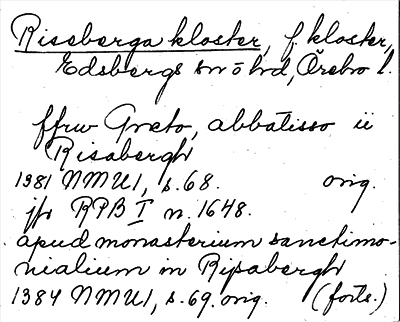 Riseberga kloster, f. kloster,
Edsbergs sn o hd, Örebro l.
ffrw Greto, abbatisso ii
Risabergh
1381 NMU1, s. 68. orig.
jfr RPB I n. 1648.
apud monasterium sanctimo-
nialium in Risabergh
1384 NMU1, s. 69. orig. (forts.)